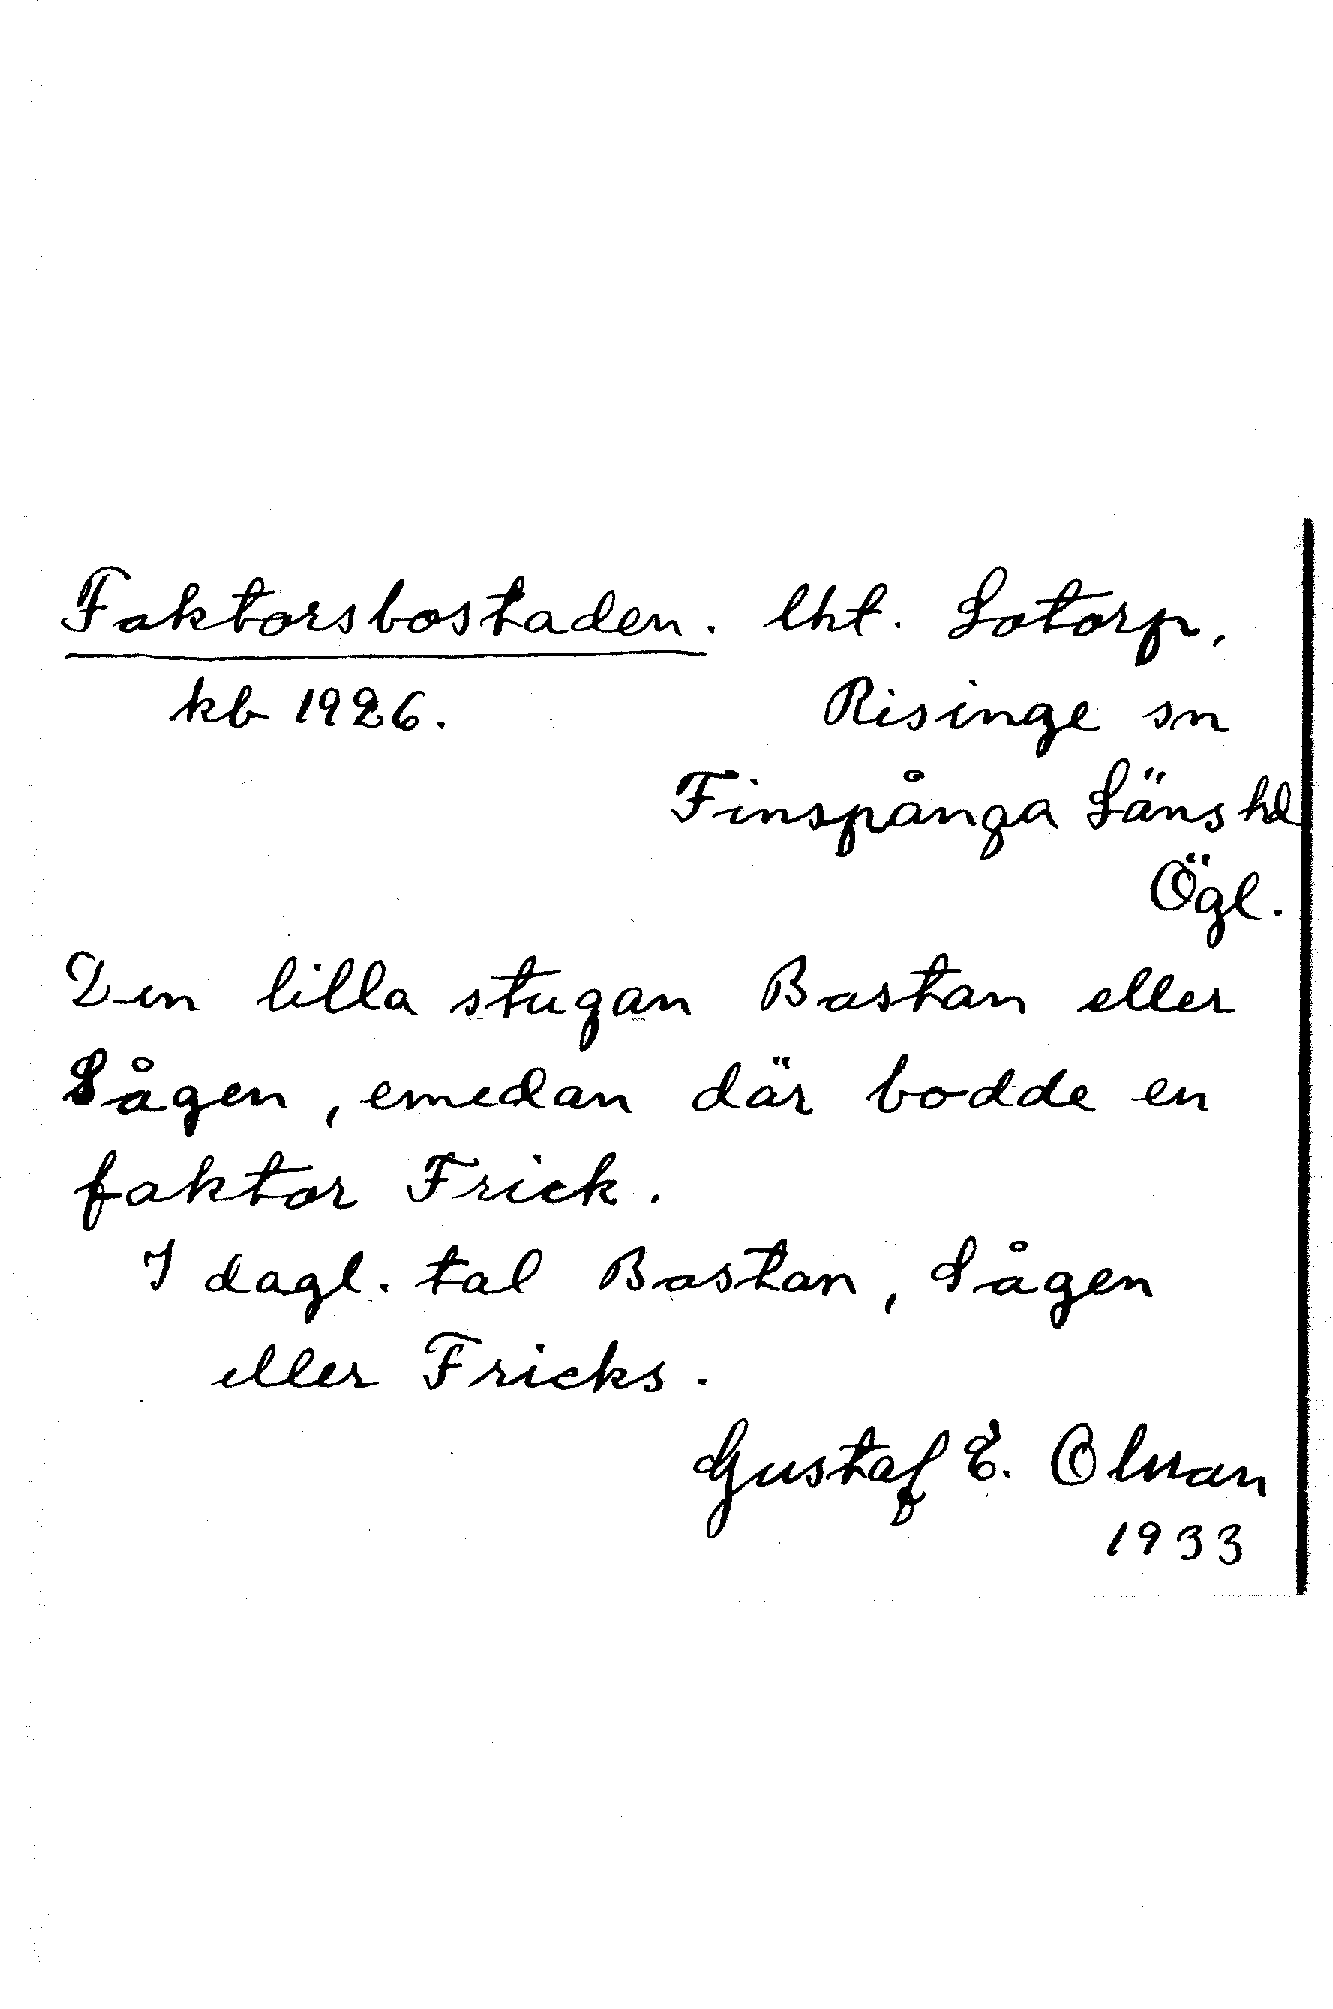 Faktorsbostaden. lht. Lotorp,
kb 1926. Risinge sn
Finspånga Läns hd
Ögl.
Den lilla stugan Bastan eller
Sågen, emedan där bodde en
faktor Frick.
I dagl. tal Bastan, Sågen
eller Fricks.
Gustaf E.
1933